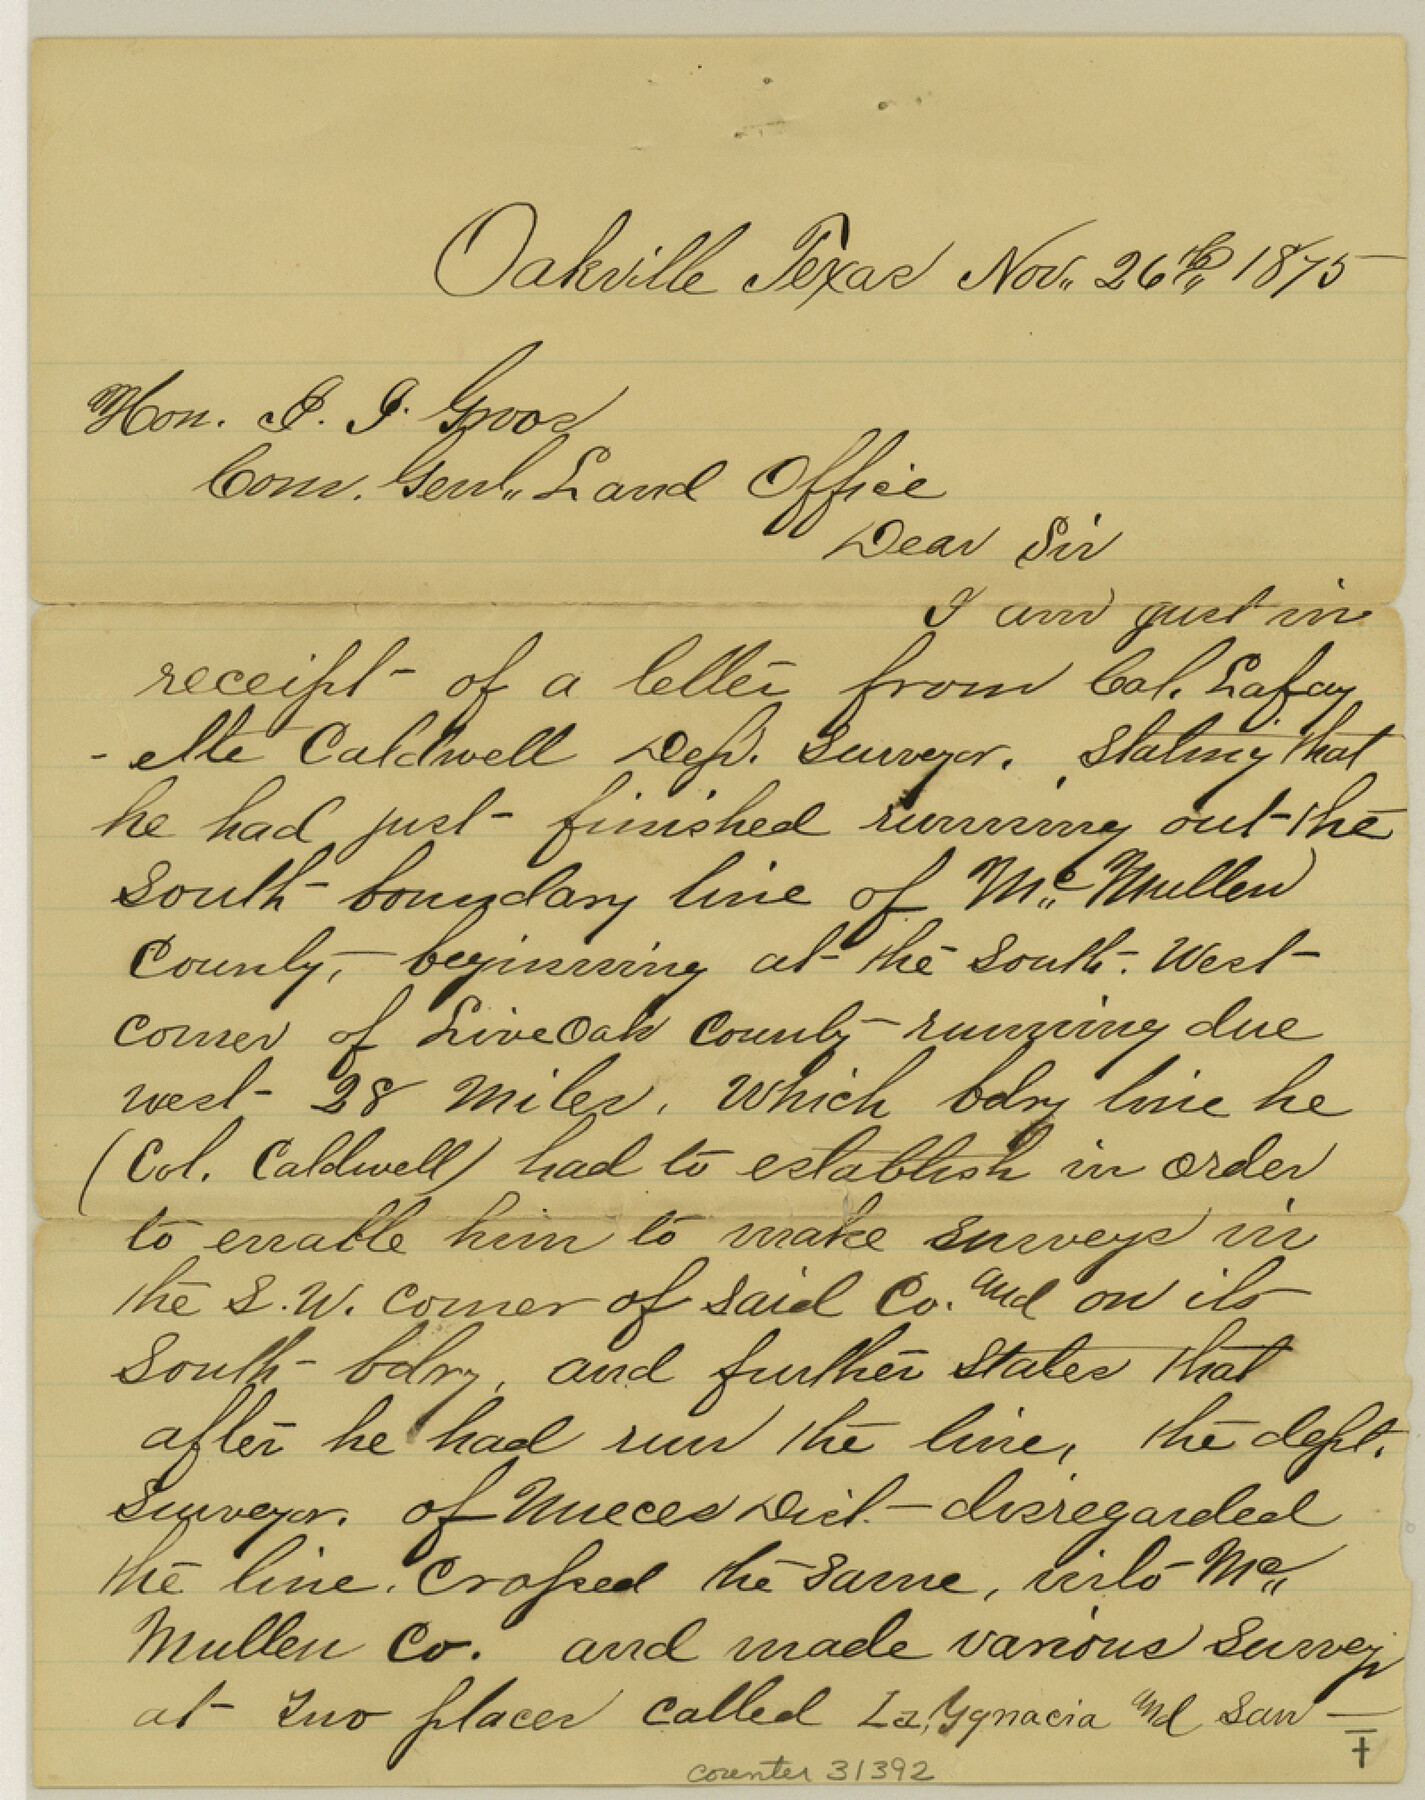 Oakville Texas Nov. 26th 1875
Hon. J. J. Groos
Com. Genl. Land Office
Dear Sir
I am just in
receipt of a letter from Col. Lafay
-ette Caldwell Dep. Surveyor, stating that
he had just finished running out the
South boundary line of Mc Mullen
County, beginning at the South West
corner of Live Oak County running due
west 28 Miles. Which bdry line he
(Col. Caldwell) had to establish in order
to enable him to make surveys in
the S.W. corner of said Co. and on its
South bdry, and further states that
after he had run the line, the dept.
Surveyor. of Nueces Dist. disregarded
the line. Crossed the same, into Mc
Mullen Co. and made various Surveys
at two places called La Ygnacia and San
counter 31392